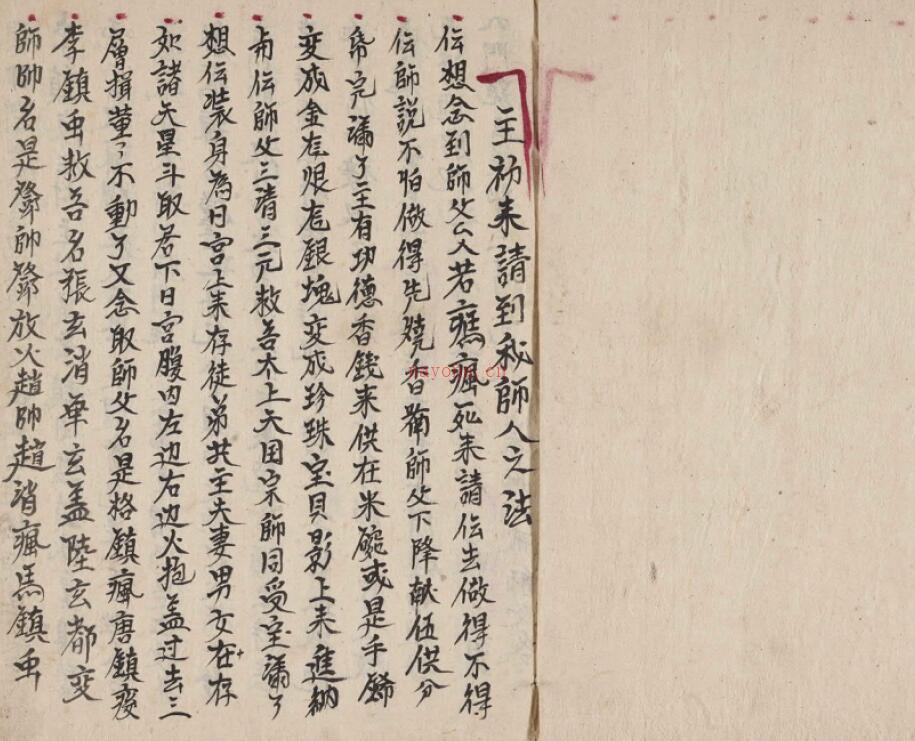 主初来請到秘師人之法
伝想念到師父人若癀瘋死来請伝去做得不得
伝師說不怕做得先燒香啟師父下降献伍供分
佈完滿了主有功德香錢来供在米碗或是手
变成金銀塊变成珍珠宝貝影上来進納
伝師父三清三元教吾太上天国宗師同受宝滿了
想伝裝身為日宮上来存徒弟共主夫妻男女在存
如諸天星斗取若下日宮腹内左边右边火抱盖过去三
層揖董了不動了又念取師父名是格鎮瘋唐鎮
李鎮虫教吾名張玄消車玄盖陸玄都变
師帥名是鄧帥鄧放火趙帥趙消瘋馬鎮虫
nayoun.cn